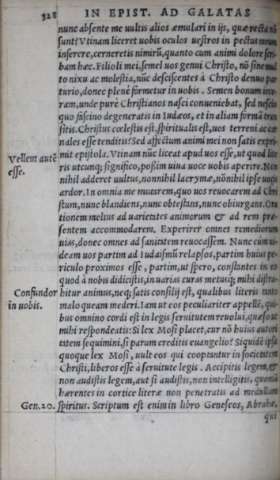 328 IN EPIST. AD GALATAS
nunc absente me uultis alios æmulari in ijs, quæ recta nõ
sunt? Vtinam liceret uobis oculos uestros in pectus meum
inserere, cerneretis nimirũ, quanto cum animi dolore scri-
bam hæc. Filioli mei, semel uos genui Christo, nõ sine
to nixu ac molestia, nũc desciscentes à Christo denuo par
turio, donec plenè formetur in uobis. Semen bonum
ram, unde purè Christianos nasci conueniebat, sed nescio
quo fascino degeneratis in Iudæos, et in aliam formã
sitis. Christus cœlestis est, spiritualis est, uos terreni ac car
nales esse tenditis? Sed affectum animi mei non satis expri-
Vellem autẽ mit epistola. Vtinam nũc liceat apud uos esse, ut quod lite
esse. ris utcunq; significo, possim uiua uoce uobis aperire. Non
nihil adderet uultus, nonnihil lacrymæ, nõnihil ipse uocis
ardor. In omnia me mutarem, quo uos reuocarem ad Chri
stum, nunc blandiens, nunc obtestans, nunc obiurgans. Ora
tionem melius ad uarietates animorum & ad rem præ-
sentem accommodarem. Experirer omnes remediorum
uias, donec omnes ad sanitatem reuocassem. Nunc cum ui-
deam uos partim ad Iudaismũ relapsos, partim huius pe-
riculo proximos esse, partim, ut spero, constantes in eo
quod à nobis didicistis, in uarias curas metusq; mihi distra-
Confundor hitur animus, neq; satis consilij est, qualibus literis tanto
in uobis. malo queam mederi. Iam ut eos peculiariter appellẽ, qui-
bus omnino cordi est in legis seruitutem reuolui, quæso ut
mihi respondeatis: Si lex Mosi placet, cur nõ huius autori
tatem sequimini, si parum creditis euangelio? Siquidẽ ipsa
quoque lex Mosi, uult eos qui cooptantur in societatem
Christi, liberos esse à seruitute legis. Accipitis legem, et
non auditis legem, aut si auditis, non intelligitis, quoniã
hærentes in cortice literæ non penetratis ad medullam
Gen. 20. spiritus. Scriptum est enim in libro Geneseos, Abrahæ,
qui